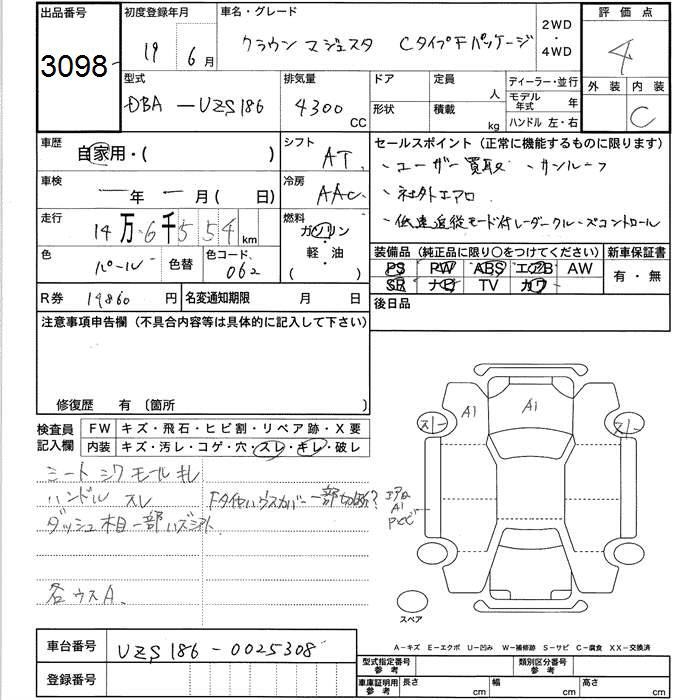 出品番号 初度登録年月 車名・グレード 2WD・4WD 評価点
3098 19 6月 クラウン マジェスタ Cタイプ Fパッケージ 4
外装 内装
C
型式 排気量 ドア 定員 人 ディーラー・並行
DBA-UZS186 4300 CC 形状 積載 kg モデル年式 年
ハンドル 左・右
車歴 自家用・( ) シフト AT セールスポイント(正常に機能するものに限ります)
・ユーザー買取 ・サンルーフ
車検 ー年ー月( 日) 冷房 AAC ・社外エアロ
走行 14万6千554km 燃料 ガソリン・軽油( ) ・低速追従モード付レーダークルーズコントロール
色 パール 色替 色コード 062 装備品(純正品に限り○をつけてください) 新車保証書
PS PW ABS エアB AW 有・無
SR ナビ TV カワ
R券 19860円 名変通知期限 月 日 後日品
注意事項申告欄(不具合内容等は具体的に記入して下さい)
修復歴 有(箇所
検査員記入欄 FW キズ・飛石・ヒビ割・リペア跡・X要
内装 キズ・汚レ・コゲ・穴・スレ・キレ・破レ
シート シワ モール キレ
ハンドル スレ Fタイヤハウスカバー一部切断?
ダッシュ木目一部ハズシアト
各ウスA
A1 A1
エアロ
A1
スペア
A-キズ E-エクボ U-凹み W-補修跡 S-サビ C-腐食 XX-交換済
車台番号 UZS186-0025308 型式指定番号 参考 類別区分番号 参考
登録番号 車庫証明用 参考 長さ cm 幅 cm 高さ cm